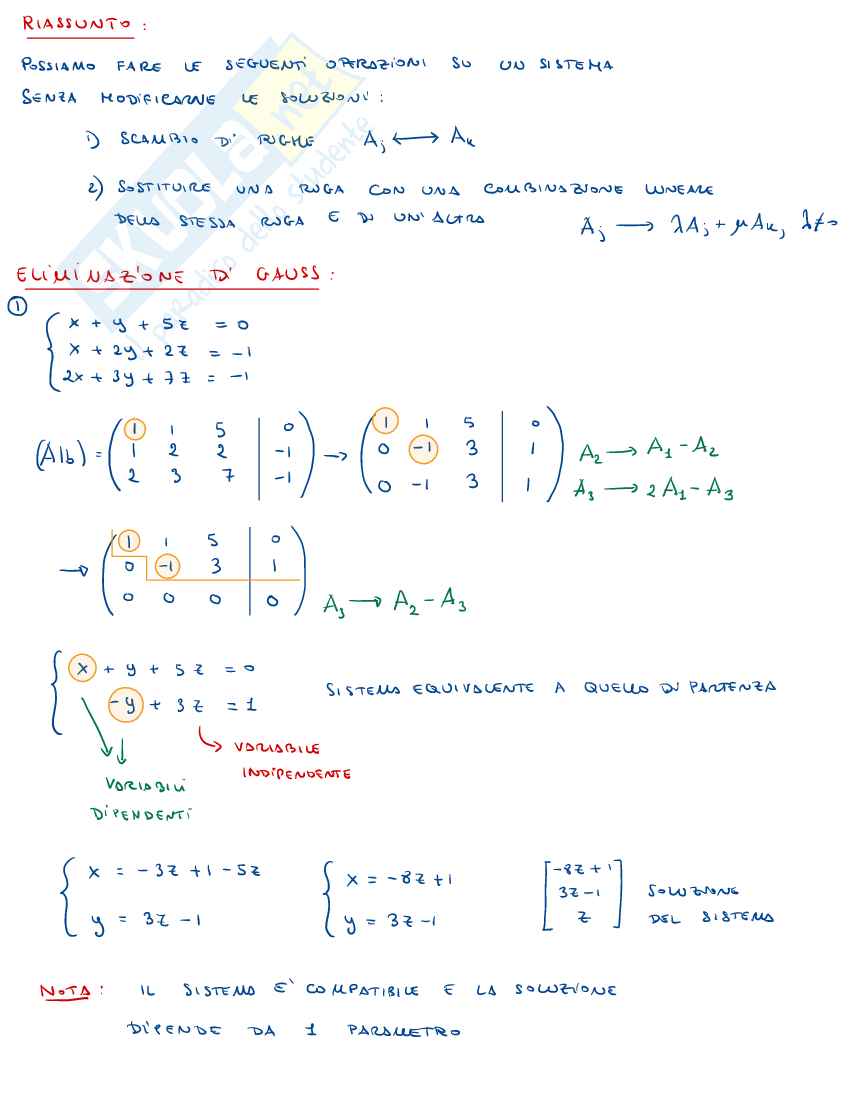 RIASSUNTO :
POSSIAMO FARE LE SEGUENTI OPERAZIONI SU UN SISTEMA
SENZA MODIFICARNE LE SOLUZIONI :
1) SCAMBIO DI RIGHE Aj ⟷ Ak
2) SOSTITUIRE UNA RIGA CON UNA COMBINAZIONE LINEARE
DELLA STESSA RIGA E DI UN'ALTRA Aj ⟶ λAj + μAk, λ≠0
SKUOLA.net
il paradiso dello studente
ELIMINAZIONE DI GAUSS :
①
x + y + 5z = 0
x + 2y + 2z = -1
2x + 3y + 7z = -1
(A|b) = ( 1 1 5 | 0 ) → ( 1 1 5 | 0 )
( 1 2 2 | -1 ) ( 0 -1 3 | 1 ) A2 ⟶ A1 - A2
( 2 3 7 | -1 ) ( 0 -1 3 | 1 ) A3 ⟶ 2A1 - A3
→ ( 1 1 5 | 0 )
( 0 -1 3 | 1 )
( 0 0 0 | 0 ) A3 ⟶ A2 - A3
x + y + 5z = 0
-y + 3z = 1
SISTEMA EQUIVALENTE A QUELLO DI PARTENZA
VARIABILE
INDIPENDENTE
VARIABILI
DIPENDENTI
x = -3z + 1 - 5z
y = 3z - 1
x = -8z + 1
y = 3z - 1
[ -8z + 1 ]
[ 3z - 1 ]
[ z ]
SOLUZIONE
DEL SISTEMA
NOTA : IL SISTEMA E' COMPATIBILE E LA SOLUZIONE
DIPENDE DA 1 PARAMETRO